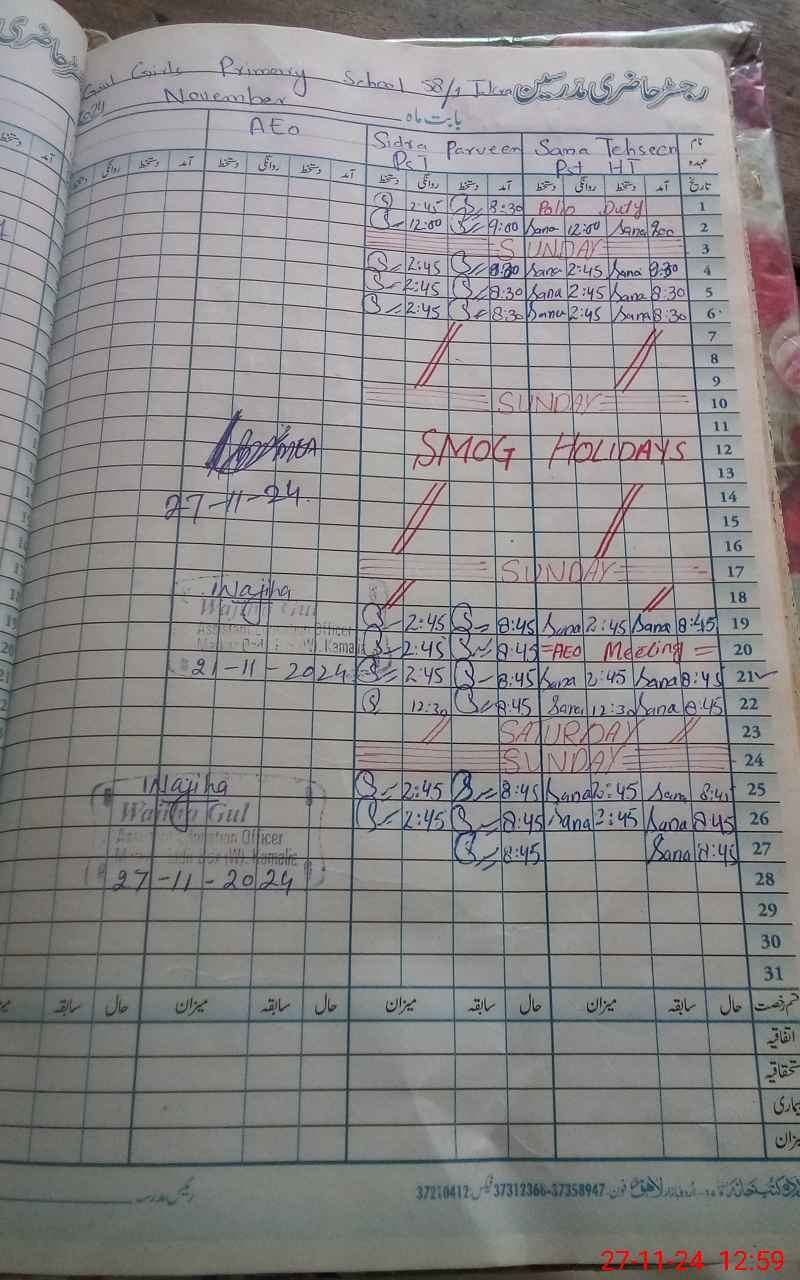 رجسٹر حاضری مدرسین
Govt Girls Primary School 58/1 Tukra
بابت ماہ November 2024
نام Sana Tehseen Sidra Parveen AEO
عہدہ Pst HT PST
تاریخ آمد دستخط روانگی دستخط آمد دستخط روانگی دستخط آمد دستخط روانگی دستخط آمد دستخط
1 Polio Duty 8:30 2:45
2 9:00 Sana 12:00 Sana 9:00 12:00
3 SUNDAY
4 8:30 Sana 2:45 Sana 8:30 2:45
5 8:30 Sana 2:45 Sana 8:30 2:45
6 8:30 Sana 2:45 Sana 8:30 2:45
7
8
9
10 SUNDAY
11
12 SMOG HOLIDAYS
13
27-11-24
14
15
16
17 SUNDAY
18
19 8:45 Sana 2:45 Sana 8:45 2:45
20 = AEO Meeting = 8:45 2:45
21 8:45 Sana 2:45 Sana 8:45 2:45
22 8:45 Sana 12:30 Sana 8:45 12:30
Wajiha
Wajiha Gul
Assistant Education Officer
21-11-2024
23 SATURDAY
24 SUNDAY
25 8:45 Sana 2:45 Sana 8:45 2:45
26 8:45 Sana 2:45 Sana 8:45 2:45
27 8:45 Sana 8:45
Wajiha
Wajiha Gul
Assistant Education Officer
27-11-2024
28
29
30
31
قسم رخصت حال سابقہ میزان حال سابقہ میزان حال سابقہ میزان حال سابقہ
اتفاقیہ
استحقاقیہ
بیماری
میزان
رئیس مدرسہ
اردو بازار لاہور فون: 37312366-37358947 فیکس: 37210412
27-11-24 12:59